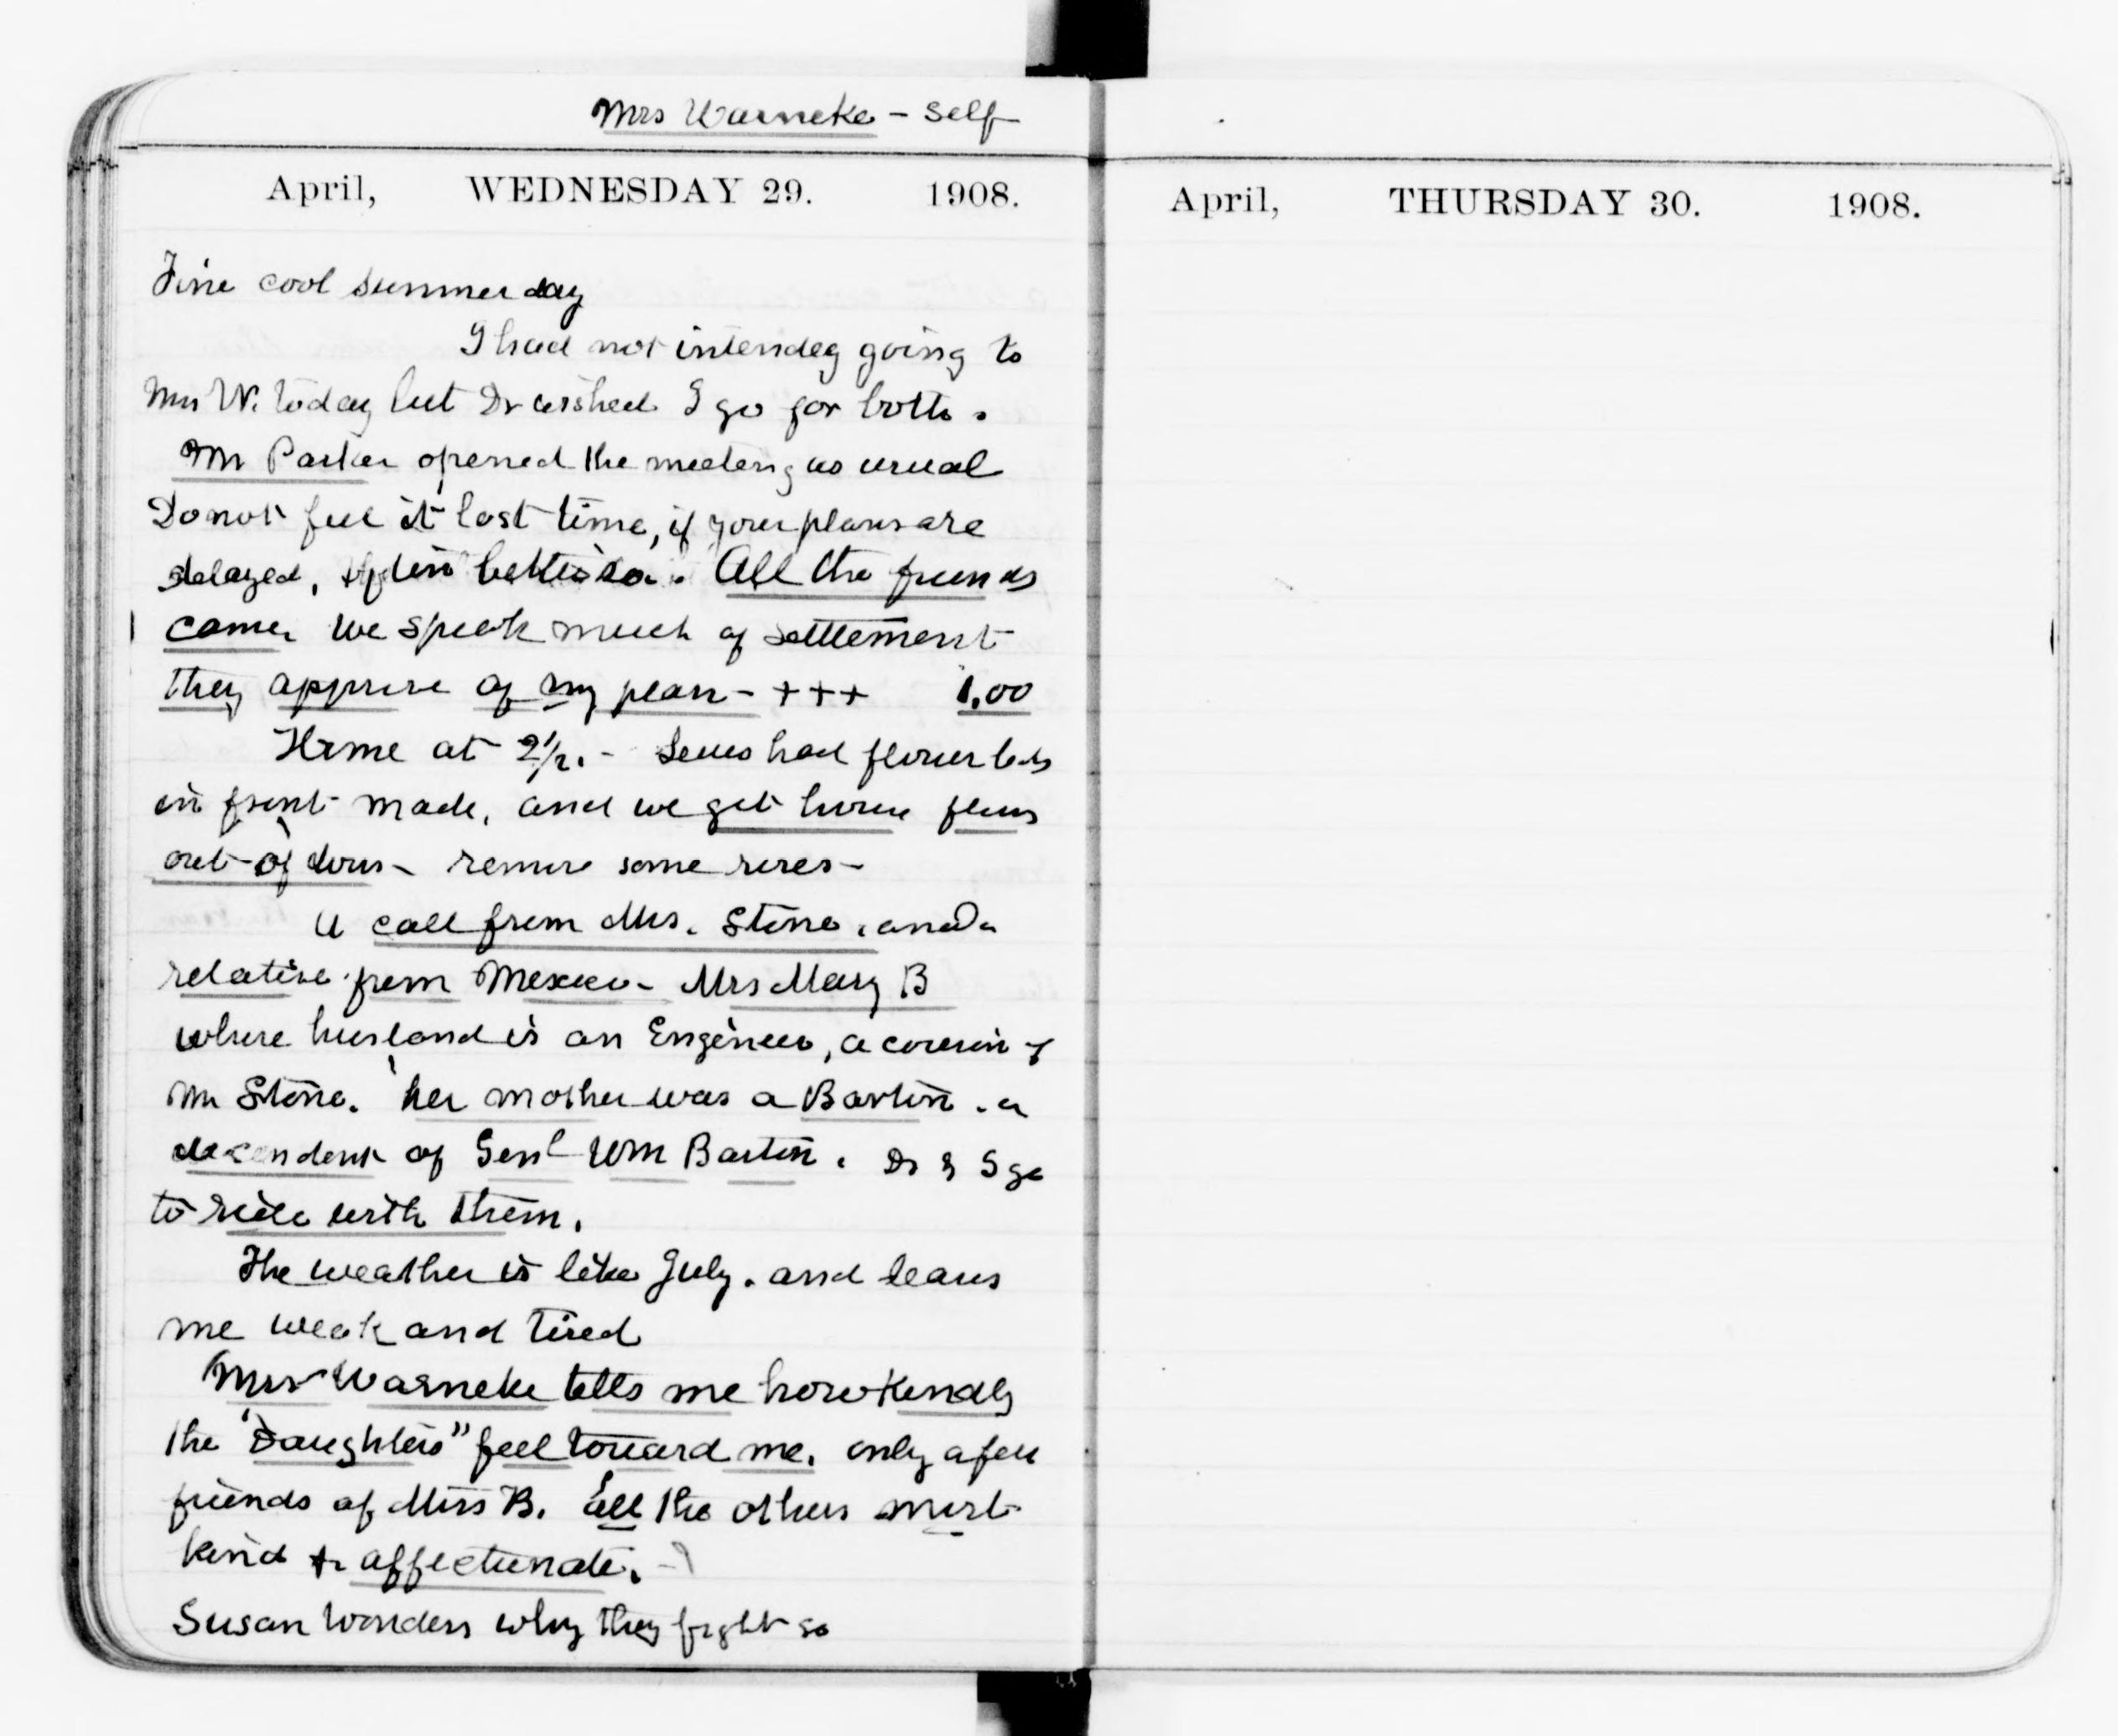 Mrs Warneke - Self
April, WEDNESDAY 29. 1908.
Fine cool summer day
I had not intended going to
Mrs W. today but Dr wished I go for both.
Mr Parker opened the meeting as usual
Do not feel it lost time, if your plans are
delayed, often better so. All the friends
came. We speak much of settlement
they approve of my plan - +++ 1.00
Home at 2 1/2. - Lewis had flower beds
in front made, and we get house plants
out of doors - remove some roses -
A call from Mrs. Stone, and a
relative from Mexico - Mrs Mary B
where husband is an Engineer, a cousin of
Mr Stone. her mother was a Barton. a
decendent of Genl Wm Barton. Dr & I go
to ride with them.
The weather is like July. and leaves
me weak and tired
Mrs Warneke tells me how kindly
the "Daughters" feel toward me. only a few
friends of Miss B. all the others most
kind & affectionate. -
Susan wonders why they fight so
April, THURSDAY 30. 1908.